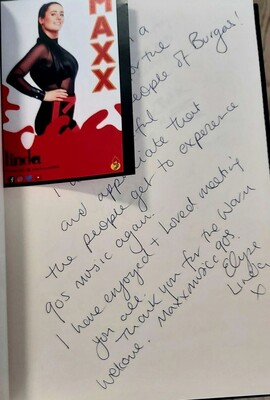 MAXX
Linda
a
the
people of Burgas!
ful
I
and appreciate that
the people get to experience
90s music again.
I have enjoyed + loved meeting
you all.
Thank you for the warm
welcome. Maxxmusic90s!
Elyse
Linda
X